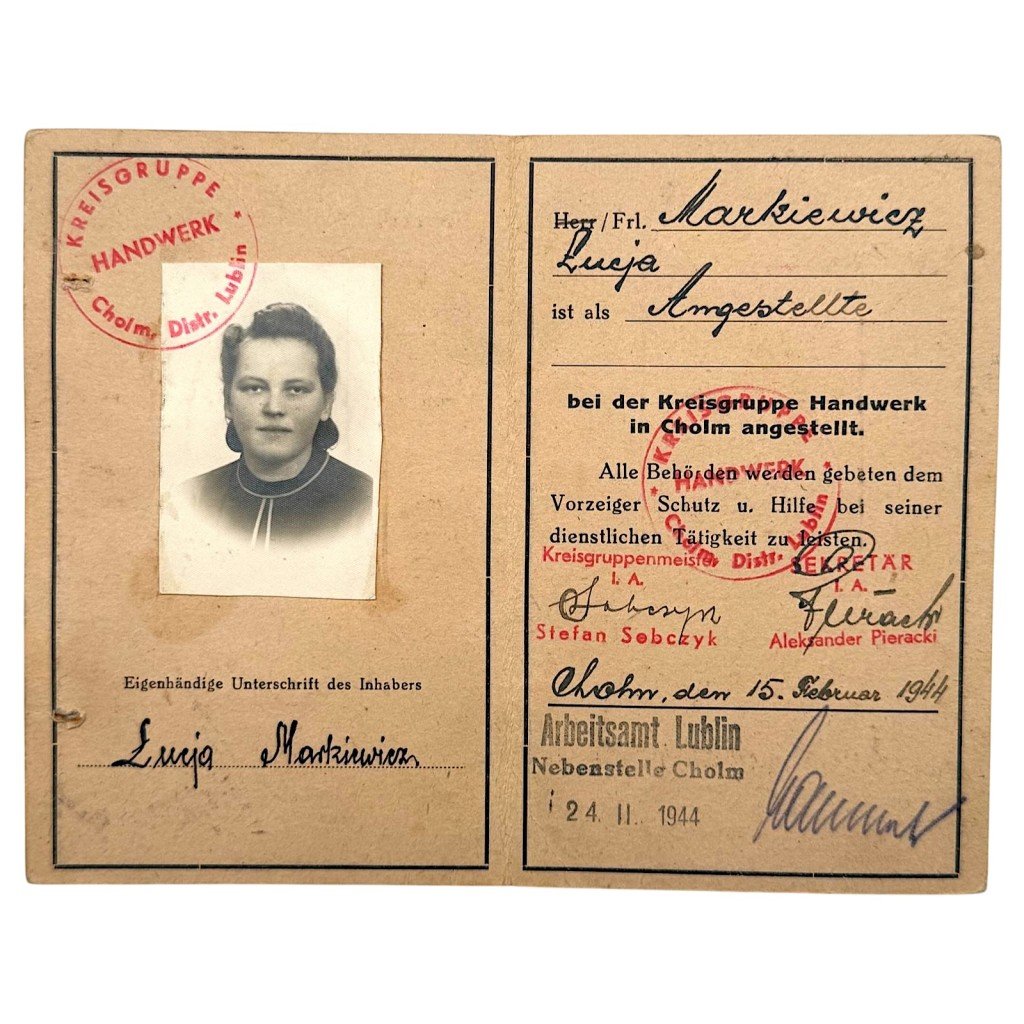 KREISGRUPPE
HANDWERK
Cholm, Distr. Lublin
Eigenhändige Unterschrift des Inhabers
Łucja Markiewicz
Herr / Frl. Markiewicz
Łucja
ist als Angestellte
bei der Kreisgruppe Handwerk
in Cholm angestellt.
KREISGRUPPE
HANDWERK
Cholm, Distr. Lublin
Alle Behörden werden gebeten dem
Vorzeiger Schutz u. Hilfe bei seiner
dienstlichen Tätigkeit zu leisten.
Kreisgruppenmeister SEKRETÄR
I. A. I. A.
Sobczyk Pieracki
Stefan Sobczyk Aleksander Pieracki
Cholm, den 15. Februar 1944
Arbeitsamt Lublin
Nebenstelle Cholm
24. II. 1944